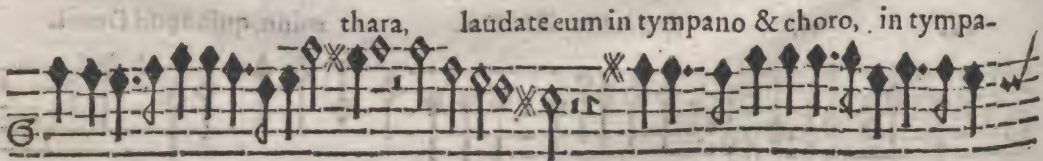 thara, laudate eum in tympano & choro, in tympa-